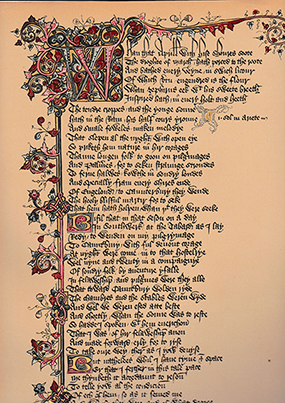 Whan that Aprill with hise shoures soote
The droghte of march hath perced to the roote
And bathed euery veyne in swich licour
Of which vertu engendred is the flour
Whan zephirus eek with his sweete breeth
Inspired hath in euery holt and heeth
The tendre croppes and the yonge sonne
hath in the Ram his half cours yronne
And smale foweles maken melodye
That slepen al the nyght with open eye
So priketh hem nature in hir corages
Thanne longen folk to goon on pilgrimages
And palmeres for to seken straunge strondes
To ferne halwes kowthe in sondry londes
And specially from euery shires ende
Of Engelond to Caunterbury they wende
The hooly blisful martir for to seke
That hem hath holpen whan that they were seeke
Bifil that in that seson on a day
In Southwerk at the Tabard as I lay
Redy to wenden on my pilgrymage
To Caunterbury with ful deuout corage
At nyght were come in to that hostelrye
Wel nyne and twenty in a compaignye
Of sondry folk by auenture yfalle
In felaweshipe and pilgrimes were they alle
That toward Caunterbury wolden ryde
The chambres and the stables weren wyde
And wel we weren esed atte beste
And shortly whan the sonne was to reste
So hadde I spoken with hem euerichon
That I was of hir felaweshipe anon
And made forward erly for to ryse
To take oure wey ther as I yow deuyse
But nathelees whil I haue tyme and space
Er that I ferther in this tale pace
Me thynketh it acordaunt to resoun
To telle yow al the condicioun
Of ech of hem so as it semed me